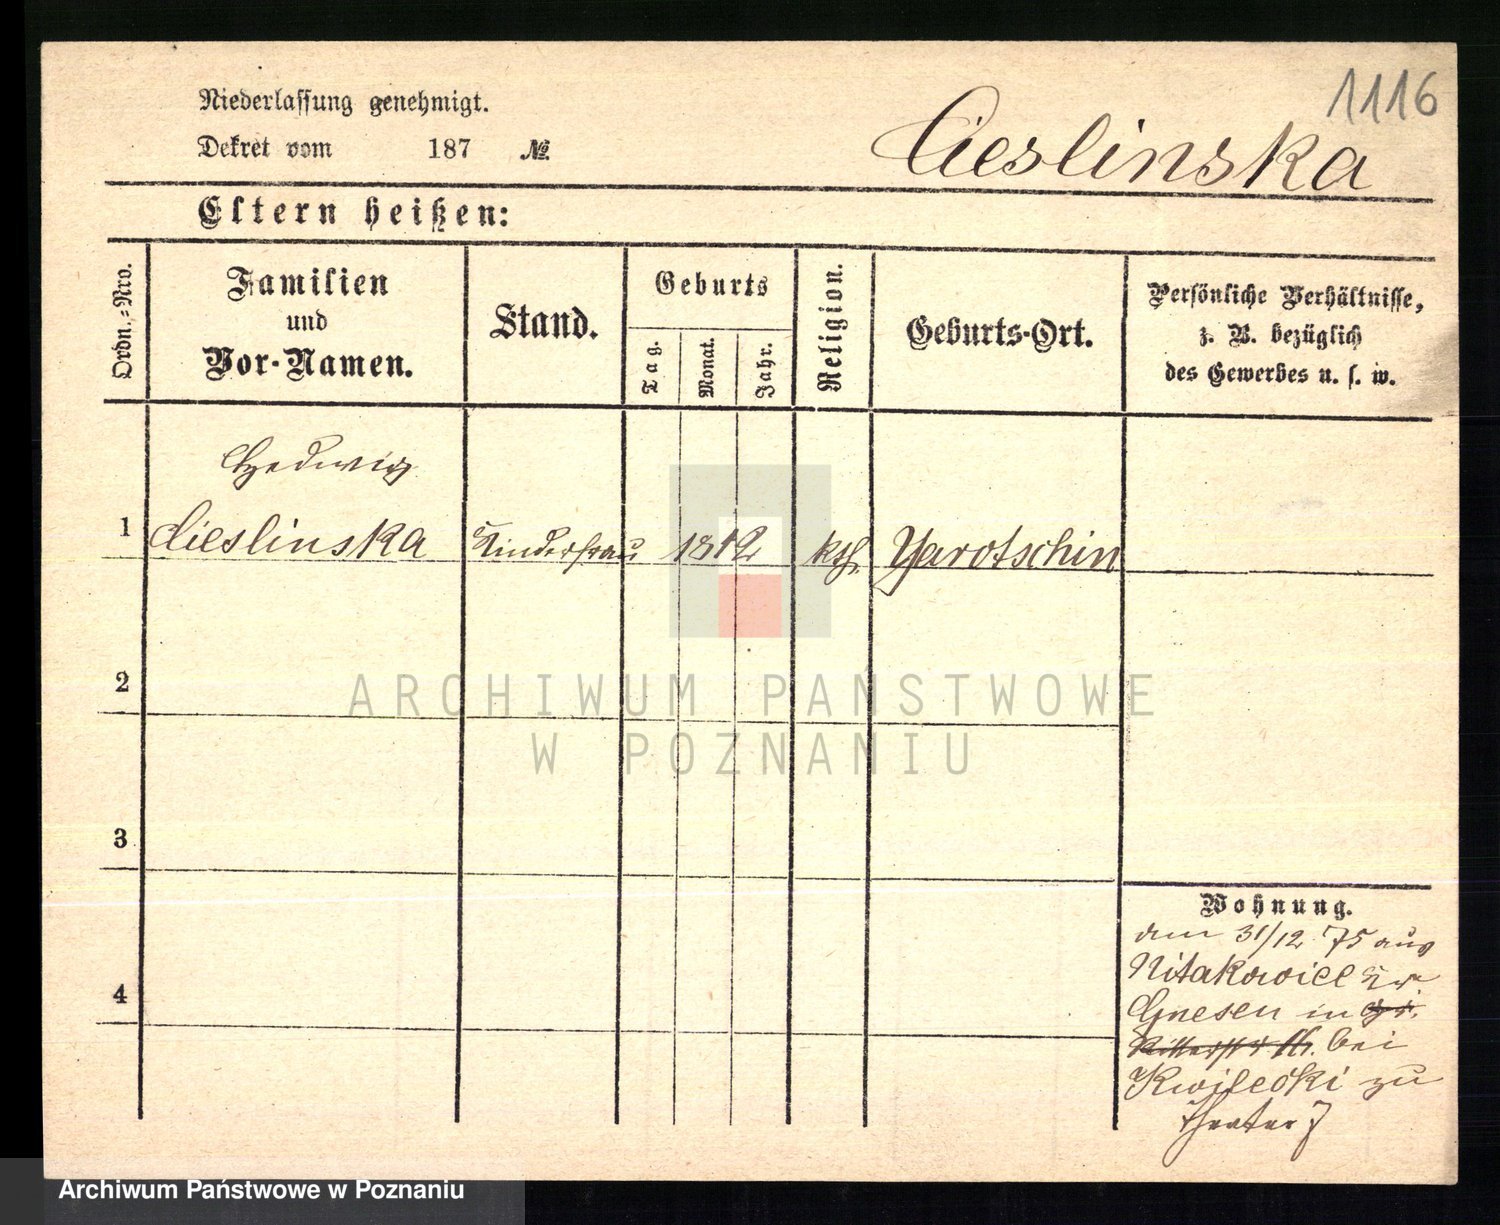 1116
Niederlassung genehmigt.
Dekret vom 187 №.
Cieslinska
Eltern heißen:
Ordn.-Nro.
Familien
und
Vor-Namen.
Stand.
Geburts
Tag.
Monat.
Jahr.
Religion.
Geburts-Ort.
Persönliche Verhältnisse,
z. B. bezüglich
des Gewerbes u. s. w.
Hedwig
1 Cieslinska Kinderfrau 1812 kth. Yarotschin
2
3
4
Wohnung.
31/12 75 aus
Nitakowiec Kr
Gnesen in
bei
Kwilecki zu
Theater 7
ARCHIWUM PAŃSTWOWE
W POZNANIU
Archiwum Państwowe w Poznaniu